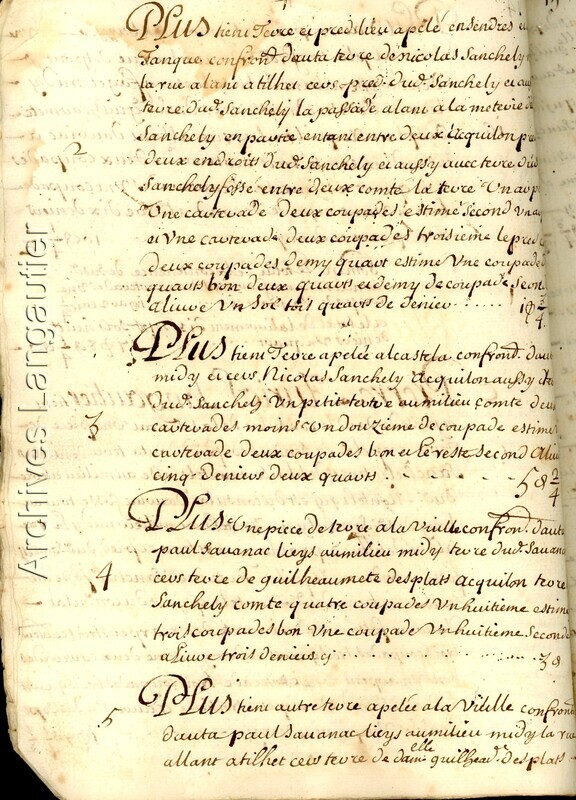 PLUS tient Terre ei pred slieu apélé en sendres
Tanque confron.t dauta terre de nicolas Sanchely
la rue alant a tilhet cers pred. dud.t Sanchely ei au
terre dud.t Sanchely la passade alant a la meterie
Sanchely en partie entant entre deux acquilon
deux endroits dud.t Sanchely ei aussy avec terre
Sanchely fossé entre deux comte la terre Un
2
Une carterade deux coupades estimé second
ei Une carterade deux coupades troisieme le pred
deux coupades demy quart estime Une coupade
quarts bon deux quarts ei demy de coupade second
alivre Un sol tois quarts de denier . . . . . . 1 s 3/4
PLUS tient Terre apelée al castela confron.t dau
midy ei cers Nicolas Sanchely acquilon aussy
dud.t Sanchely Un petit tertre au milieu comte deux
3
carterades moins Un douzième de coupade estime
carterade deux coupades bon ei le reste second
cinq deniers deux quarts . . . . . 5 d 2/4
PLUS Une piece de terre a la Vieille confron.t dauta
paul Sauanac lieys au milieu midy terre dud.t
cers terre de guilheaumete desplats acquilon terre
4
Sanchely comte quatre coupades Un huitième
trois coupades bon Une coupade Un huitieme second
alivre trois deniers cj . . . . . . . . 3 d
PLUS tient autre terre apelée a la Vilille confron
5
dauta paul Sauanac lieys au milieu midy la rue
allant a tilhet cers terre de dam.elle guilheau.e desplats
Archives Langautier